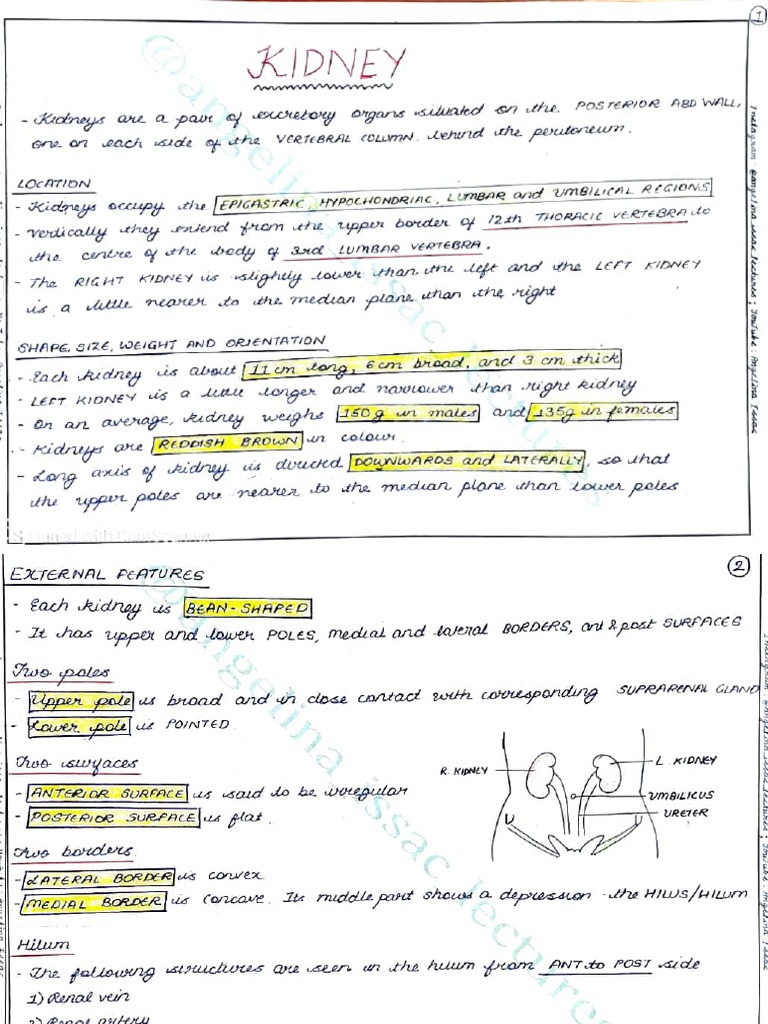 1
KIDNEY
- Kidneys are a pair of excretory organs situated on the POSTERIOR ABD WALL,
one on each side of the VERTEBRAL COLUMN, behind the peritoneum.
LOCATION
- Kidneys occupy the EPIGASTRIC, HYPOCHONDRIAC, LUMBAR and UMBILICAL REGIONS
- Vertically they extend from the upper border of 12th THORACIC VERTEBRA to
the centre of the body of 3rd LUMBAR VERTEBRA.
- The RIGHT KIDNEY is slightly lower than the left and the LEFT KIDNEY
is a little nearer to the median plane than the right
SHAPE, SIZE, WEIGHT AND ORIENTATION
- Each kidney is about 11 cm long, 6 cm broad, and 3 cm thick
- LEFT KIDNEY is a little longer and narrower than right kidney
- On an average, kidney weighs 150 g in males and 135g in females
- Kidneys are REDDISH BROWN in colour.
- Long axis of kidney is directed DOWNWARDS and LATERALLY, so that
the upper poles are nearer to the median plane than lower poles
Scanned with CamScanner
@angelina_issac_lectures
Instagram: @angelina_issac_lectures; YouTube: Angelina Issac
2
EXTERNAL FEATURES
- Each kidney is BEAN-SHAPED
- It has upper and lower POLES, medial and lateral BORDERS, ant & post SURFACES
Two poles
- Upper pole is broad and in close contact with corresponding SUPRARENAL GLAND
- Lower pole is POINTED
Two surfaces
- ANTERIOR SURFACE is said to be irregular
- POSTERIOR SURFACE is flat.
R. KIDNEY
L. KIDNEY
UMBILICUS
URETER
Two borders
- LATERAL BORDER is convex
- MEDIAL BORDER is concave. Its middle part shows a depression - the HILUS/HILUM
Hilum
- The following structures are seen in the hilum from ANT to POST side
1) Renal vein
2) Renal artery
@angelina_issac_lectures
Instagram: @angelina_issac_lectures; YouTube: Angelina Issac